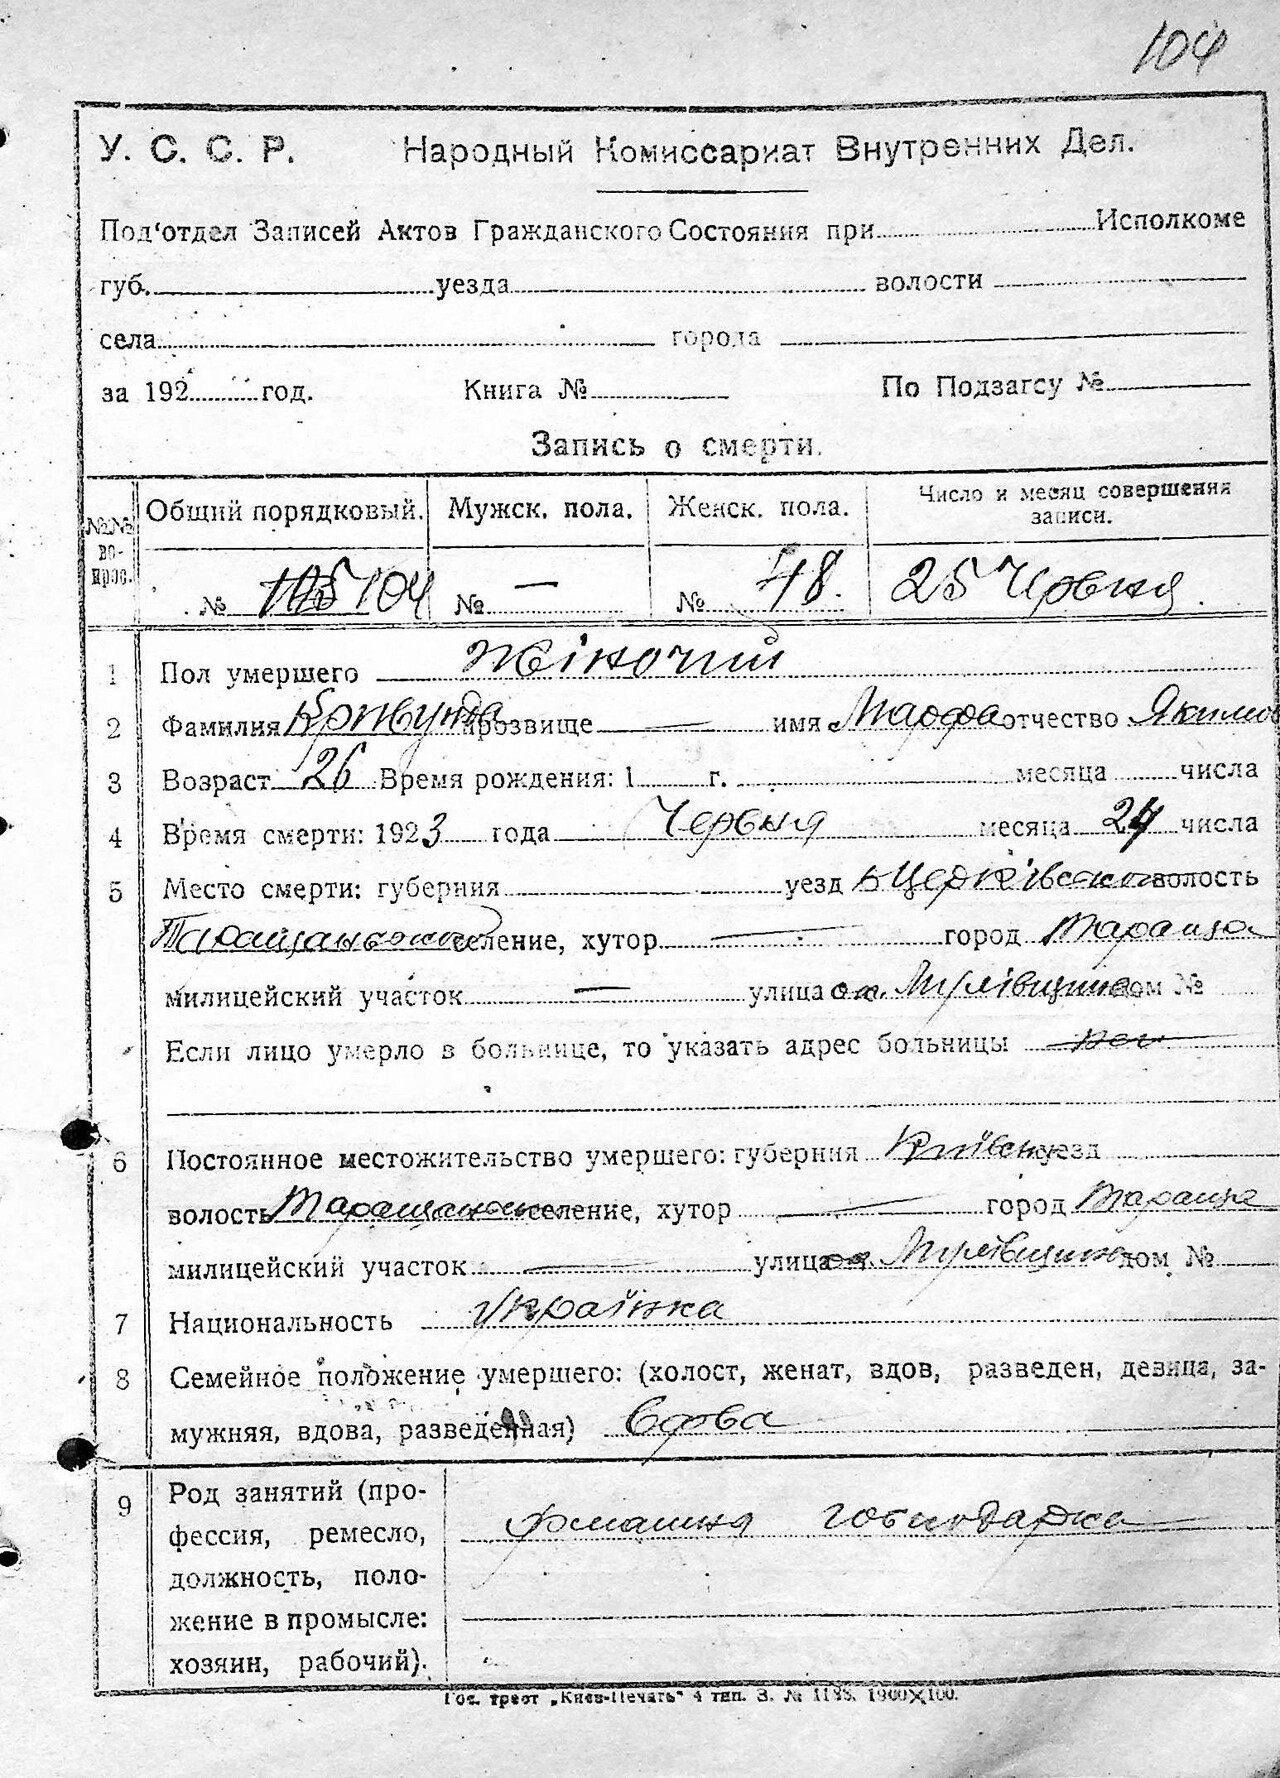 104
У. С. С. Р. Народный Комиссариат Внутренних Дел.
Под'отдел Записей Актов Гражданского Состояния при Исполкоме
губ. уезда волости
села города
за 192 год. Книга № По Подзагсу №
Запись о смерти.
№№ во- прос. Общий порядковый. Мужск. пола. Женск. пола. Число и месяц совершения записи.
№ 105 104 № — № 48. 25 Червня.
1 Пол умершего Жіночий
2 Фамилия прозвище — имя Марфа отчество Якимов
3 Возраст 26 Время рождения: 1 г. месяца числа
4 Время смерти: 1923 года Червня месяца 24 числа
5 Место смерти: губерния уезд Б Церківськ волость
Таращанськ селение, хутор — город Тараща
милицейский участок — улица дом №
Если лицо умерло в больнице, то указать адрес больницы
6 Постоянное местожительство умершего: губерния Київськ уезд
волость Таращанськ селение, хутор — город Тараща
милицейский участок — улица дом №
7 Национальность Українка
8 Семейное положение умершего: (холост, женат, вдов, разведен, девица, за-
мужняя, вдова, разведенная) Вдова
9 Род занятий (про-
фессия, ремесло,
должность, поло-
жение в промысле:
хозяин, рабочий).
домашня господарка
Гос. трест „Киев-Печать" 4 тип. З. № 1188. 1900×100.